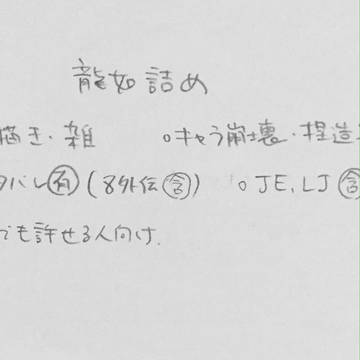 龍如詰め
描き・雑 ○キャラ崩壊・捏造
タバレ有(8外伝含) ○JE,LJ含
でも許せる人向け.